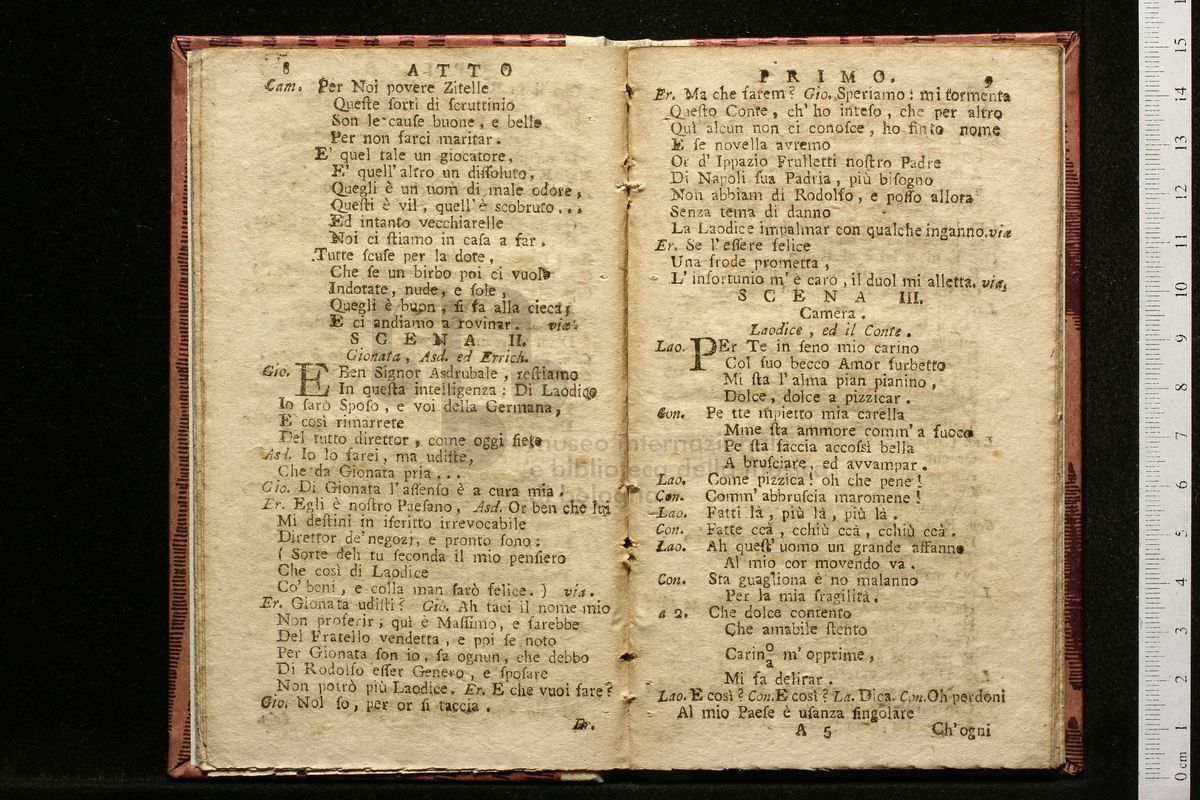 8 ATTO
Cam. Per Noi povere Zitelle
Queſte ſorti di ſcruttinio
Son le cauſe buone, e belle
Per non farci maritar.
E' quel tale un giocatore,
E' quell' altro un diſſoluto,
Quegli è un uom di male odore,
Queſti è vil, quell' è scobruto...
Ed intanto vecchiarelle
Noi ci ſtiamo in caſa a far.
Tutte ſcuſe per la dote,
Che ſe un birbo poi ci vuole
Indotate, nude, e ſole,
Quegli è buon, ſi fa alla cieca;
E ci andiamo a rovinar. via.
SCENA II.
Gionata, Asd. ed Errich.
Gio. EBen Signor Asdrubale, reſtiamo
In queſta intelligenza: Di Laodice
Io ſarò Spoſo, e voi della Germana,
E così rimarrete
Del tutto direttor, come oggi ſiete
Asd. Io lo ſarei, ma udiſte,
Che da Gionata pria...
Gio. Di Gionata l'aſſenſo è a cura mia.
Er. Egli è noſtro Paeſano, Asd. Or ben che lui
Mi deſtini in iſcritto irrevocabile
Direttor de' negozj, e pronto ſono:
( Sorte deh tu ſeconda il mio penſiero
Che così di Laodice
Co' beni, e colla man ſarò felice. ) via.
Er. Gionata udiſti? Gio. Ah taci il nome mio
Non proferir; quì è Maſſimo, e ſarebbe
Del Fratello vendetta, e poi ſe noto
Per Gionata ſon io, ſa ognun, che debbo
Di Rodolfo eſſer Genero, e ſpoſare
Non potrò più Laodice. Er. E che vuoi fare?
Gio. Nol ſo, per or ſi taccia.
Er.
PRIMO. 9
Er. Ma che farem? Gio. Speriamo: mi tormenta
Queſto Conte, ch' ho inteſo, che per altro
Quì alcun non ci conoſce, ho finto nome
E ſe novella avremo
Or d' Ippazio Frulletti noſtro Padre
Di Napoli ſua Padria, più biſogno
Non abbiam di Rodolfo, e poſſo allora
Senza tema di danno
La Laodice impalmar con qualche inganno. via
Er. Se l'eſſere felice
Una frode prometta,
L' infortunio m' è caro, il duol mi alletta. via,
SCENA III.
Camera.
Laodice, ed il Conte.
Lao. PEr Te in ſeno mio carino
Col ſuo becco Amor furbetto
Mi ſta l'alma pian pianino,
Dolce, dolce a pizzicar.
Con. Pe tte mpietto mia carella
Mme ſta ammore comm' a fuoco
Pe ſta faccia accoſsì bella
A bruſciare, ed avvampar.
Lao. Come pizzica! oh che pene!
Con. Comm' abbruſcia maromene!
Lao. Fatti là, più là, più là.
Con. Fatte ccà, cchiù ccà, cchiù ccà.
Lao. Ah queſt' uomo un grande affanno
Al mio cor movendo va.
Con. Sta guagliona è no malanno
Per la mia fragilità.
a 2. Che dolce contento
Che amabile ſtento
Carin o/a m' opprime,
Mi fa delirar.
Lao. E così? Con. E così? La. Dica. Con. Oh perdoni
Al mio Paeſe è uſanza ſingolare
A 5 Ch'ogni
museo internazionale
e biblioteca della musica
di bologna